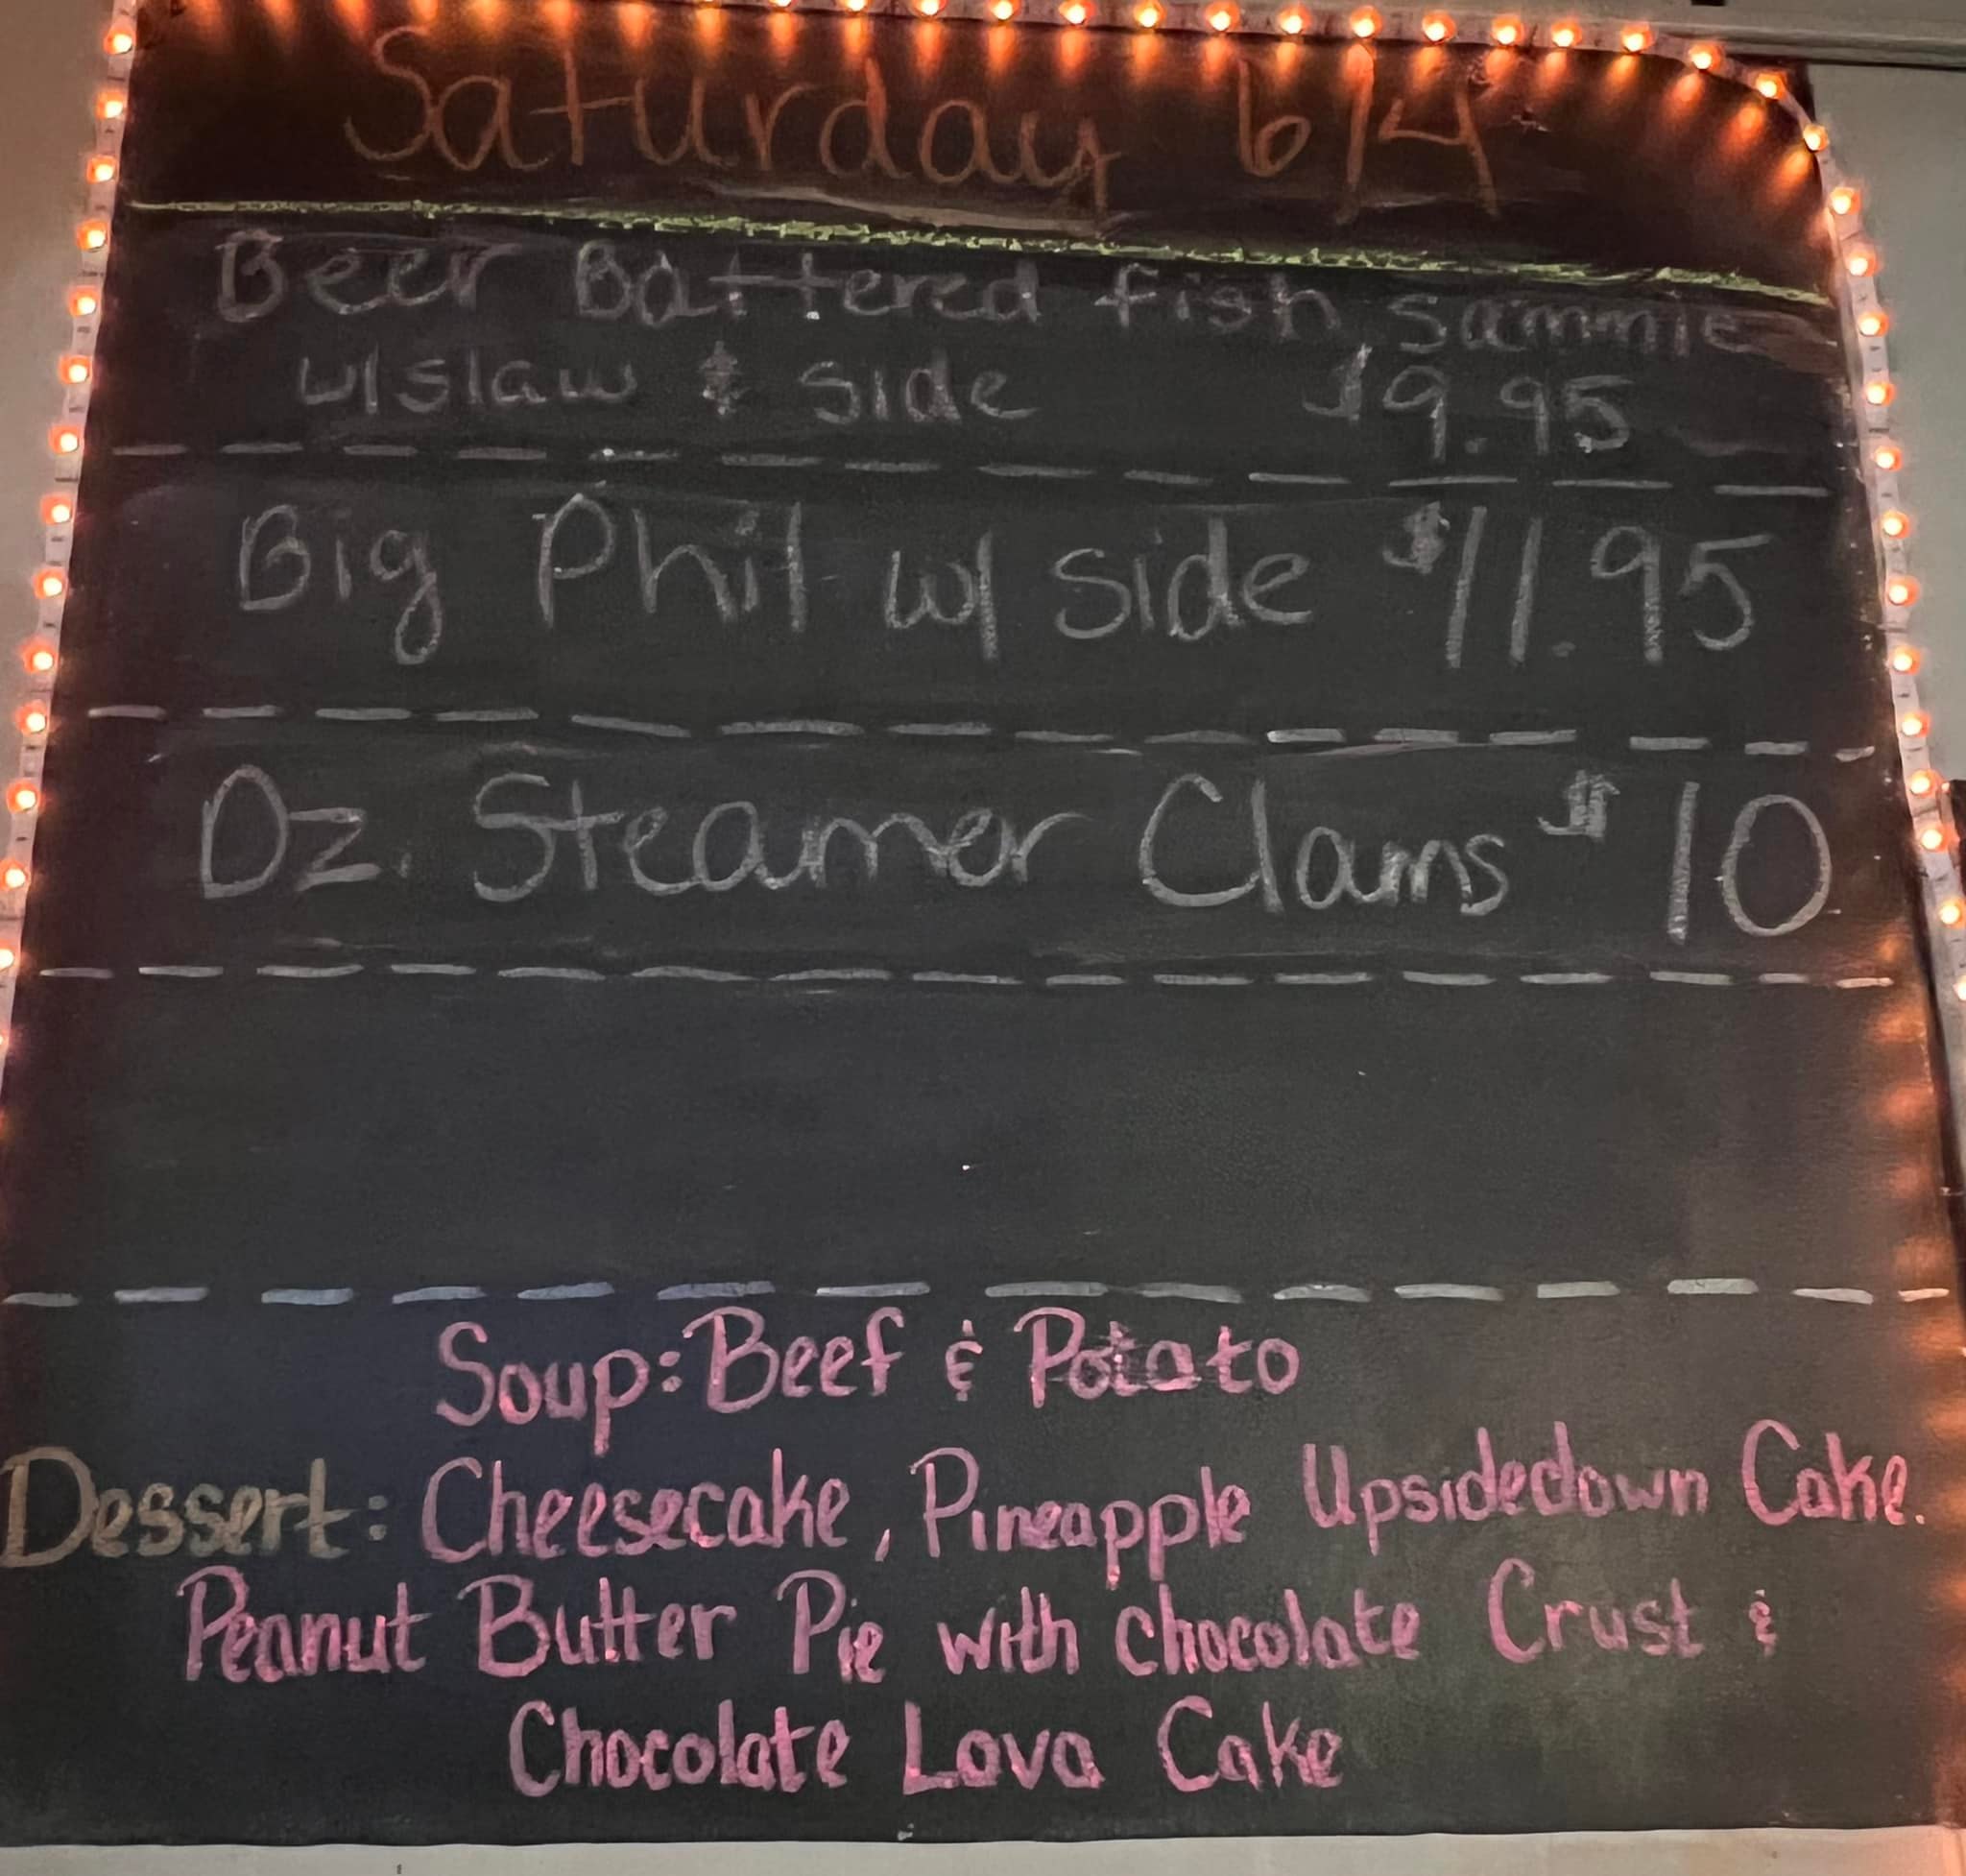 Saturday 6/4
Beer Battered fish sammie
w/slaw & side $9.95
Big Phil w/ side $11.95
Dz. Steamer Clams $10
Soup: Beef & Potato
Dessert: Cheesecake, Pineapple Upsidedown Cake.
Peanut Butter Pie with chocolate Crust &
Chocolate Lava Cake